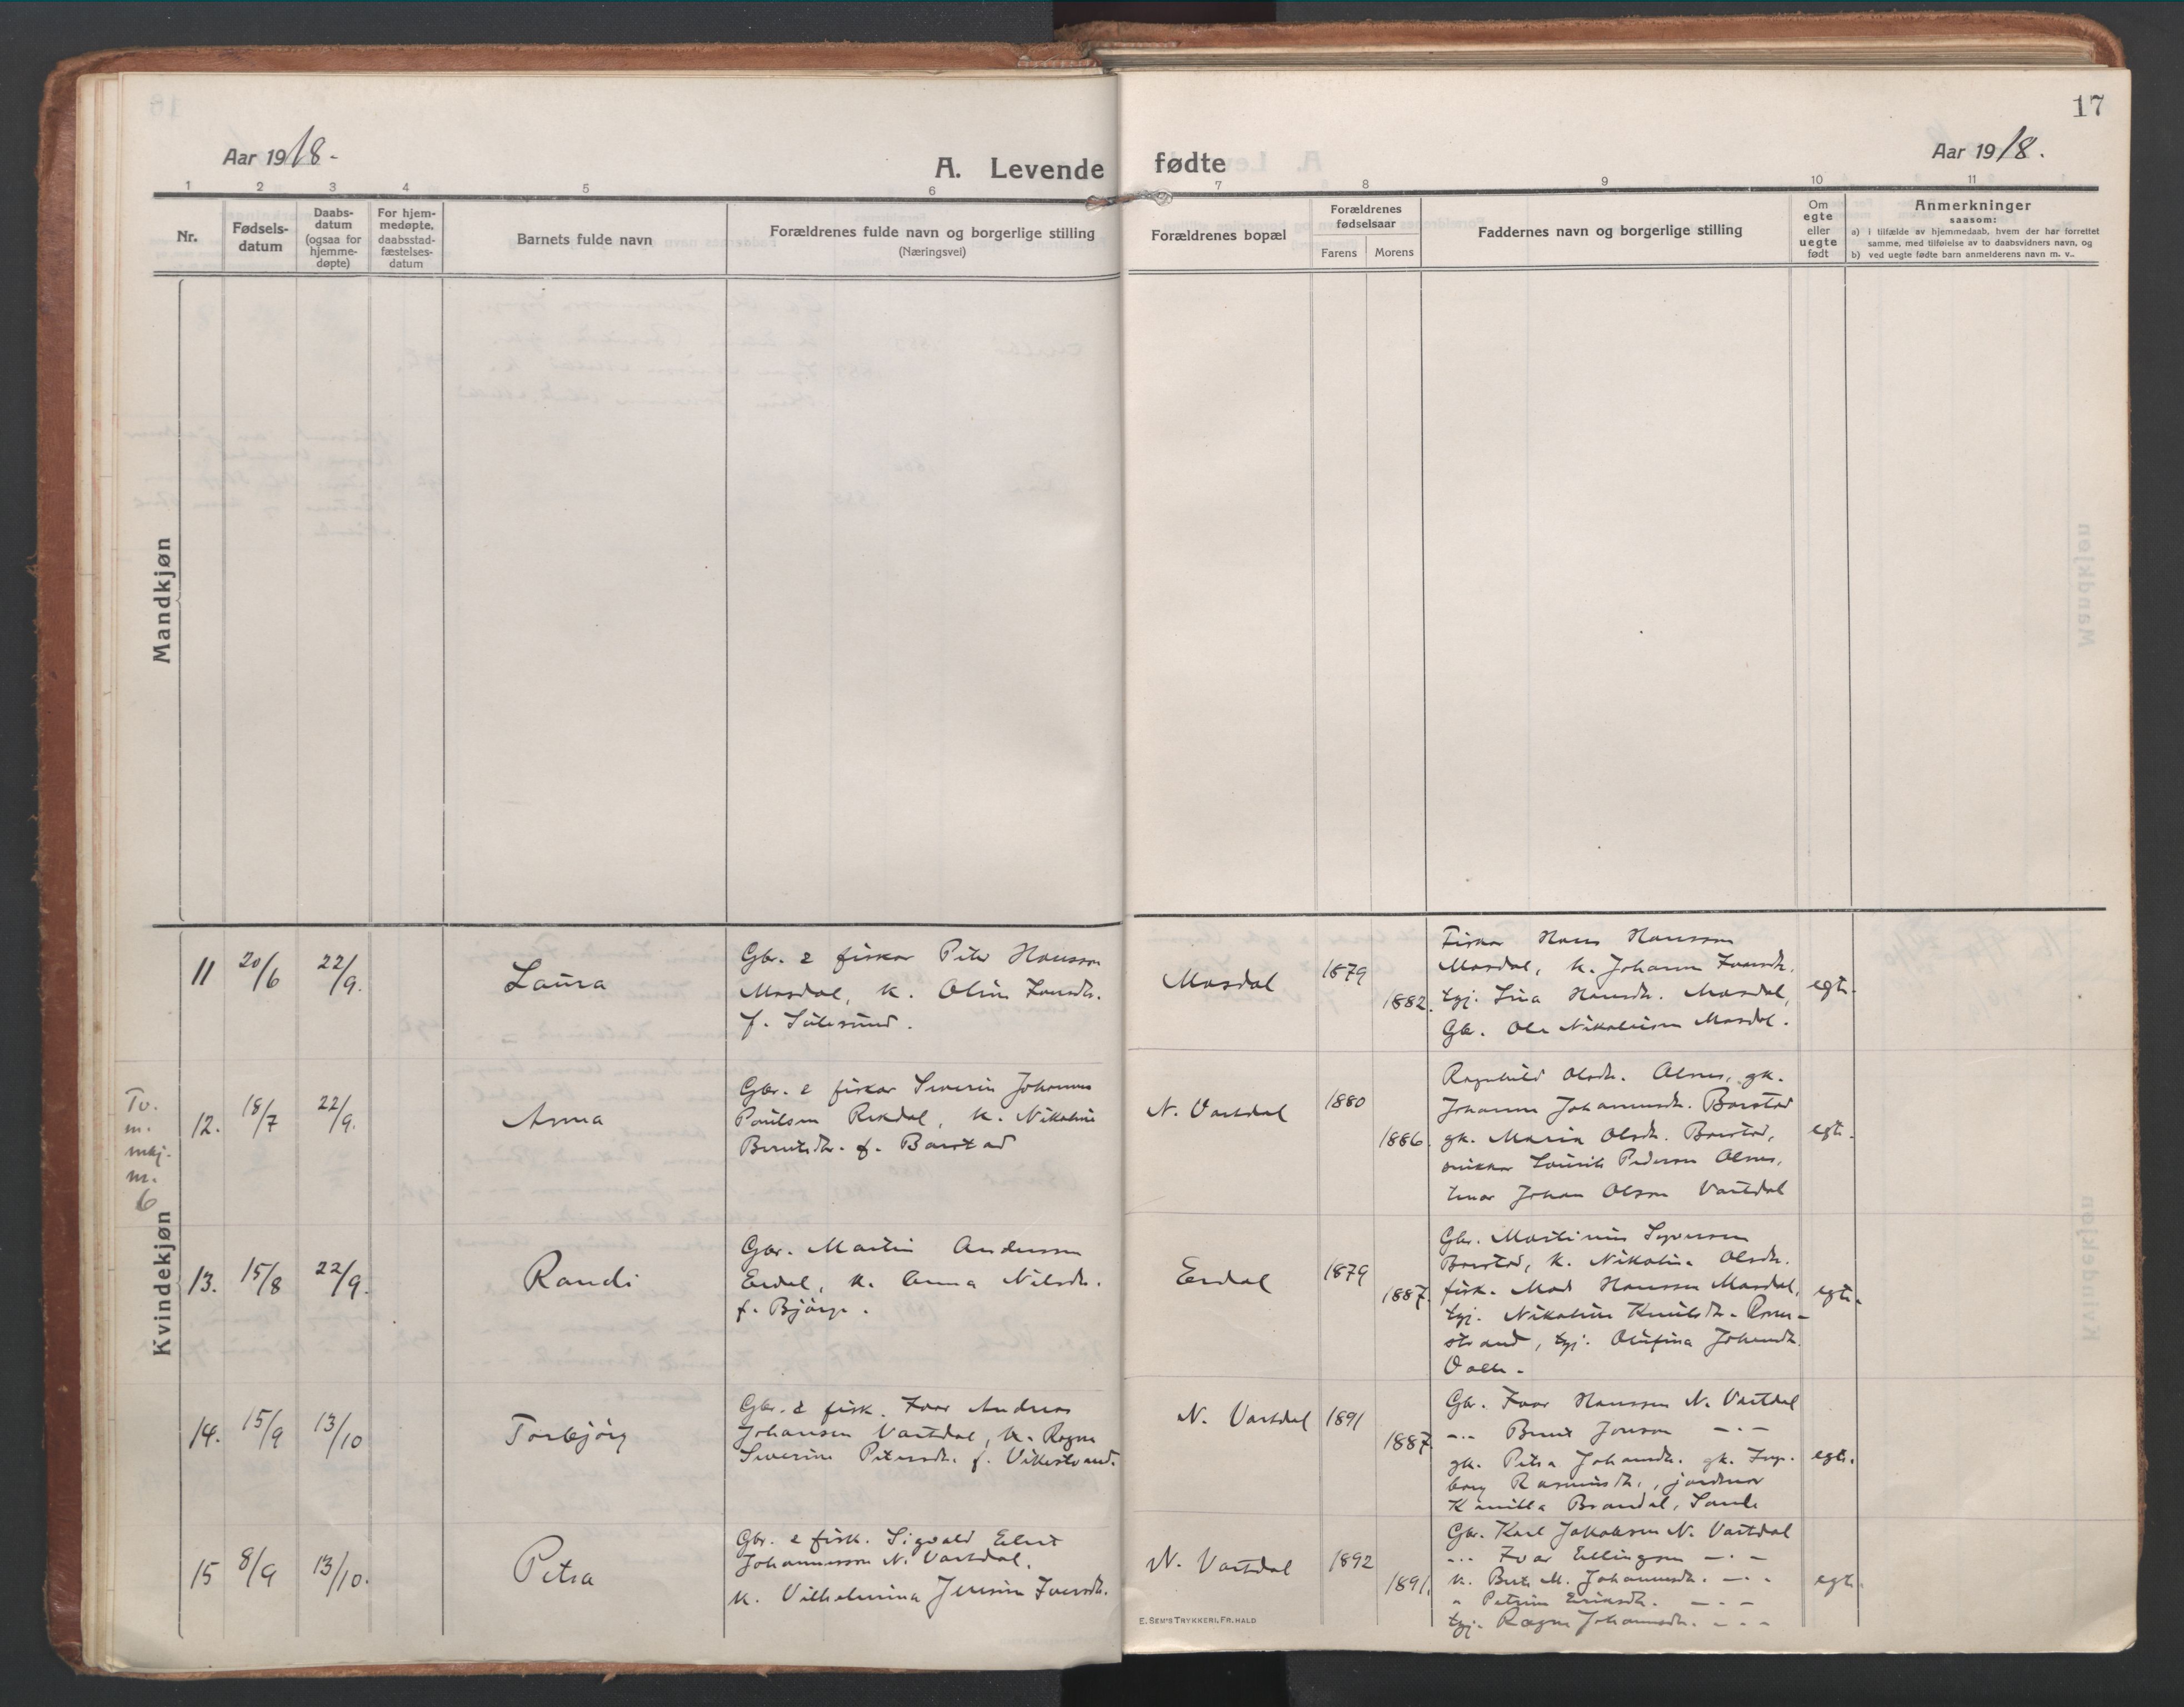 17
Aar 1918.-
A. Levende fødte
Aar 1918.
1 2 3 4 5 6 7 8 9 10 11
Nr.
Fødsels-
datum
Daabs-
datum
(ogsaa for
hjemme-
døpte)
For hjem-
medøpte,
daabsstad-
fæstelses-
datum
Barnets fulde navn
Forældrenes fulde navn og borgerlige stilling
(Næringsvei)
Forældrenes bopæl
Forældrenes
fødselsaar
Farens
Morens
Faddernes navn og borgerlige stilling
Om
egte
eller
uegte
født
Anmerkninger
saasom:
a) i tilfælde av hjemmedaab, hvem der har forrettet
samme, med tilføielse av to daabsvidners navn, og
b) ved uegte fødte barn anmelderens navn m. v.
Mandkjøn
Kvindekjøn
11 20/6 22/9.
Laura
Gbr. & fiskar Peter Hansson
Masdal, k. Oline Iversdr.
f. Sulesund.
Masdal
1879
1882.
Fiskar Hans Hansson
Masdal, k. Johanne Iversdr.
tgj. Lina Hansdr. Masdal,
Gbr. Ole Nikolaisen Masdal.
egte.
Tv.
m.
maj.
m.
6
12. 18/7 22/9.
Anna
Gbr. & fiskar Severin Johannes
Paulsen Rekdal, k. Nikoline
Berntsdr. f. Barstad
N. Vartdal
1880
1886.
Ragnhild Olsdr. Alnes, gk.
Johanne Johannesdr. Barstad
gk. Maria Olsdr. Barstad,
snikkar Laurits Pederson Alnes,
Johan Olson Vartdal
egte.
13. 15/8 22/9.
Randi
Gbr. Martin Anderssen
Erdal, k. Anna Nilsdr.
f. Bjørge.
Erdal
1879
1887.
Gbr. Martinus Syverson
Barstad, k. Nikolina Olsdr.
fisk. Mads Hansson Masdal,
tgj. Nikoline Knutsdr.
strand, tgj. Olufina Johansdr.
egte.
14. 15/9 13/10
Torbjörg
Gbr. & fisk. Ivar Andreas
Johansen Vartdal, k. Ragna
Severine Petersdr. f. Vikestrand.
N. Vartdal
1891
1887.
Gbr. Ivar Hansson N. Vartdal
-"- Bernt Jonson -"-
gk. Petra Johansdr. gk. Inge-
borg Rasmusdr., jordmor
Kamilla Brandal, Saule
egte.
15 8/9 13/10.
Petra
Gbr. & fisk. Sigvald Elert
Johannessen N. Vartdal,
k. Vilhelmina Jensine Iversdr.
N. Vartdal
1892
1891.
Gbr. Karl Jakobsen N. Vartdal
-"- Ivar Ellingsen -"-
k. Berte M. Johannesdr. -"-
" Petrine Eriksdr. -"-
tgj. Ragna Johannesdr. -"-
egte.
E. SEM'S TRYKKERI, FR. HALD